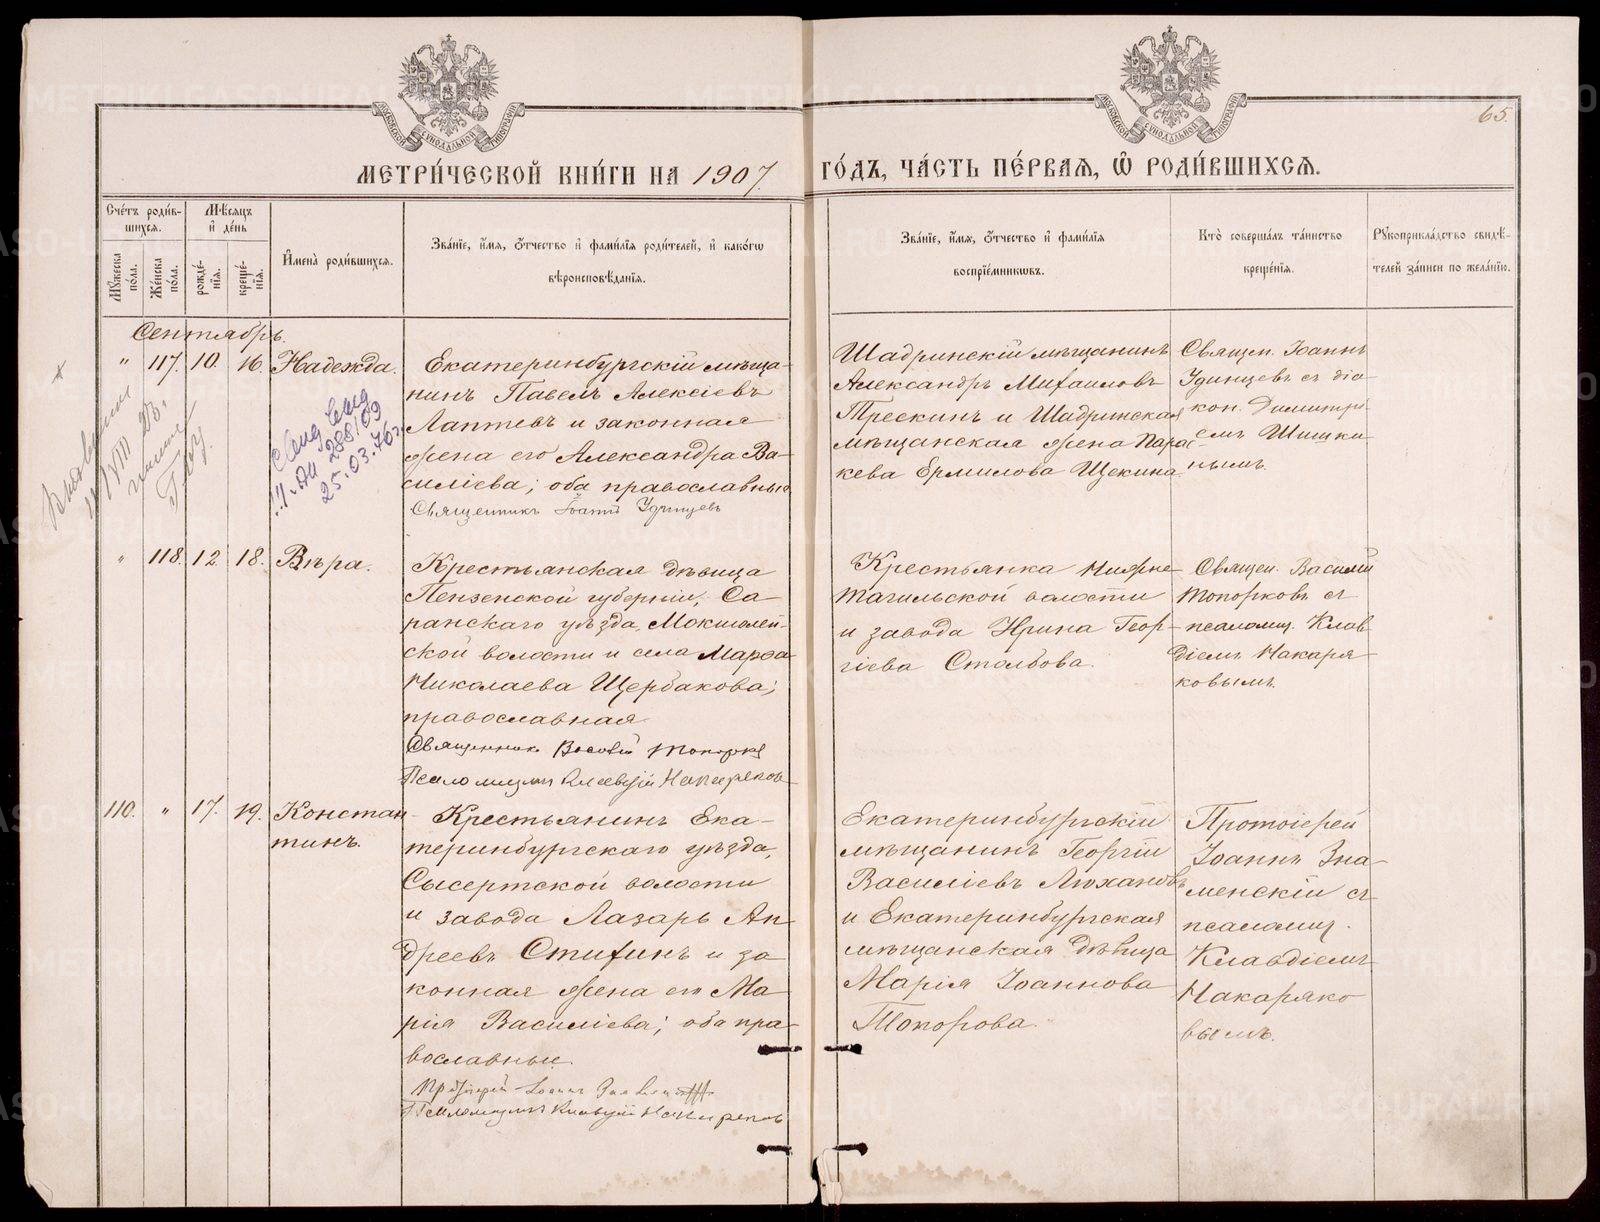 65.
МЕТРИ́ЧЕСКОЙ КНИ́ГИ НА 1907.
ГО́ДЪ, ЧА́СТЬ ПЕ́РВАЯ, Ѡ҆ РОДИ́ВШИХСЯ.
Сче́тъ роди́в-
шихся.
Му́жеска по́ла.
Же́нска по́ла.
Мѣ́сяцъ и҆ де́нь
рожде́-
нїя.
креще́-
нїя.
И҆мена̀ роди́вшихся.
Зва́нїе, и҆́мя, ѻ҆́тчество и҆ фами́лїя роди́телей, и҆ како́гѡ
вѣроисповѣ́данїя.
Зва́нїе, и҆́мя, ѻ҆́тчество и҆ фами́лїя
воспрїе́мникѡвъ.
Кто̀ соверша́лъ та́инство
креще́нїя.
Рукоприкла́дство свидѣ́-
телей за́писи по жела́нїю.
Сентябрь.
" 117. 10. 16. Надежда.
Екатеринбургскій мѣща-
нинъ Павелъ Алексіевъ
Лаптевъ и законная
жена его Александра Ва-
силіева; оба православные
Священникъ Іоаннъ Удинцевъ
Шадринскій мѣщанинъ
Александръ Михаиловъ
Трескинъ и Шадринская
мѣщанская жена Парас
кева Ермилова Щекина.
Священ. Іоаннъ
Удинцевъ съ діа
кон. Димитрі-
емъ Шишки
нымъ.
25.03.76г.
" 118. 12 18. Вѣра.
Крестьянская дѣвица
Пензенской губерніи, Са-
ранскаго уѣзда, Мокшалей-
ской волости и села Марѳа
Николаева Щербакова;
православная
Священникъ Василій Топорковъ
Псаломщикъ Клавдій Накаряковъ
Крестьянка Нижне
тагильской волости
и завода Ирина Геор-
гіева Столбова.
Священ. Василій
Топорковъ съ
псаломщ. Клав
діемъ Накаря-
ковымъ.
110. " 17. 19. Констан-
тинъ.
Крестьянинъ Ека-
теринбургскаго уѣзда,
Сысертской волости
и завода Лазарь Ан
дреевъ Стихинъ и за
конная жена его Ма
рія Василіева; оба пра-
вославные.
Протоіерей Іоаннъ Знаменскій
Псаломщикъ Клавдій Накаряковъ
Екатеринбургскій
мѣщанинъ Георгій
Василіевъ Люхановъ
и Екатеринбургская
мѣщанская дѣвица
Марія Іоаннова
Топорова.
Протоіерей
Іоаннъ Зна-
менскій съ
псаломщ.
Клавдіемъ
Накаряко
вымъ.